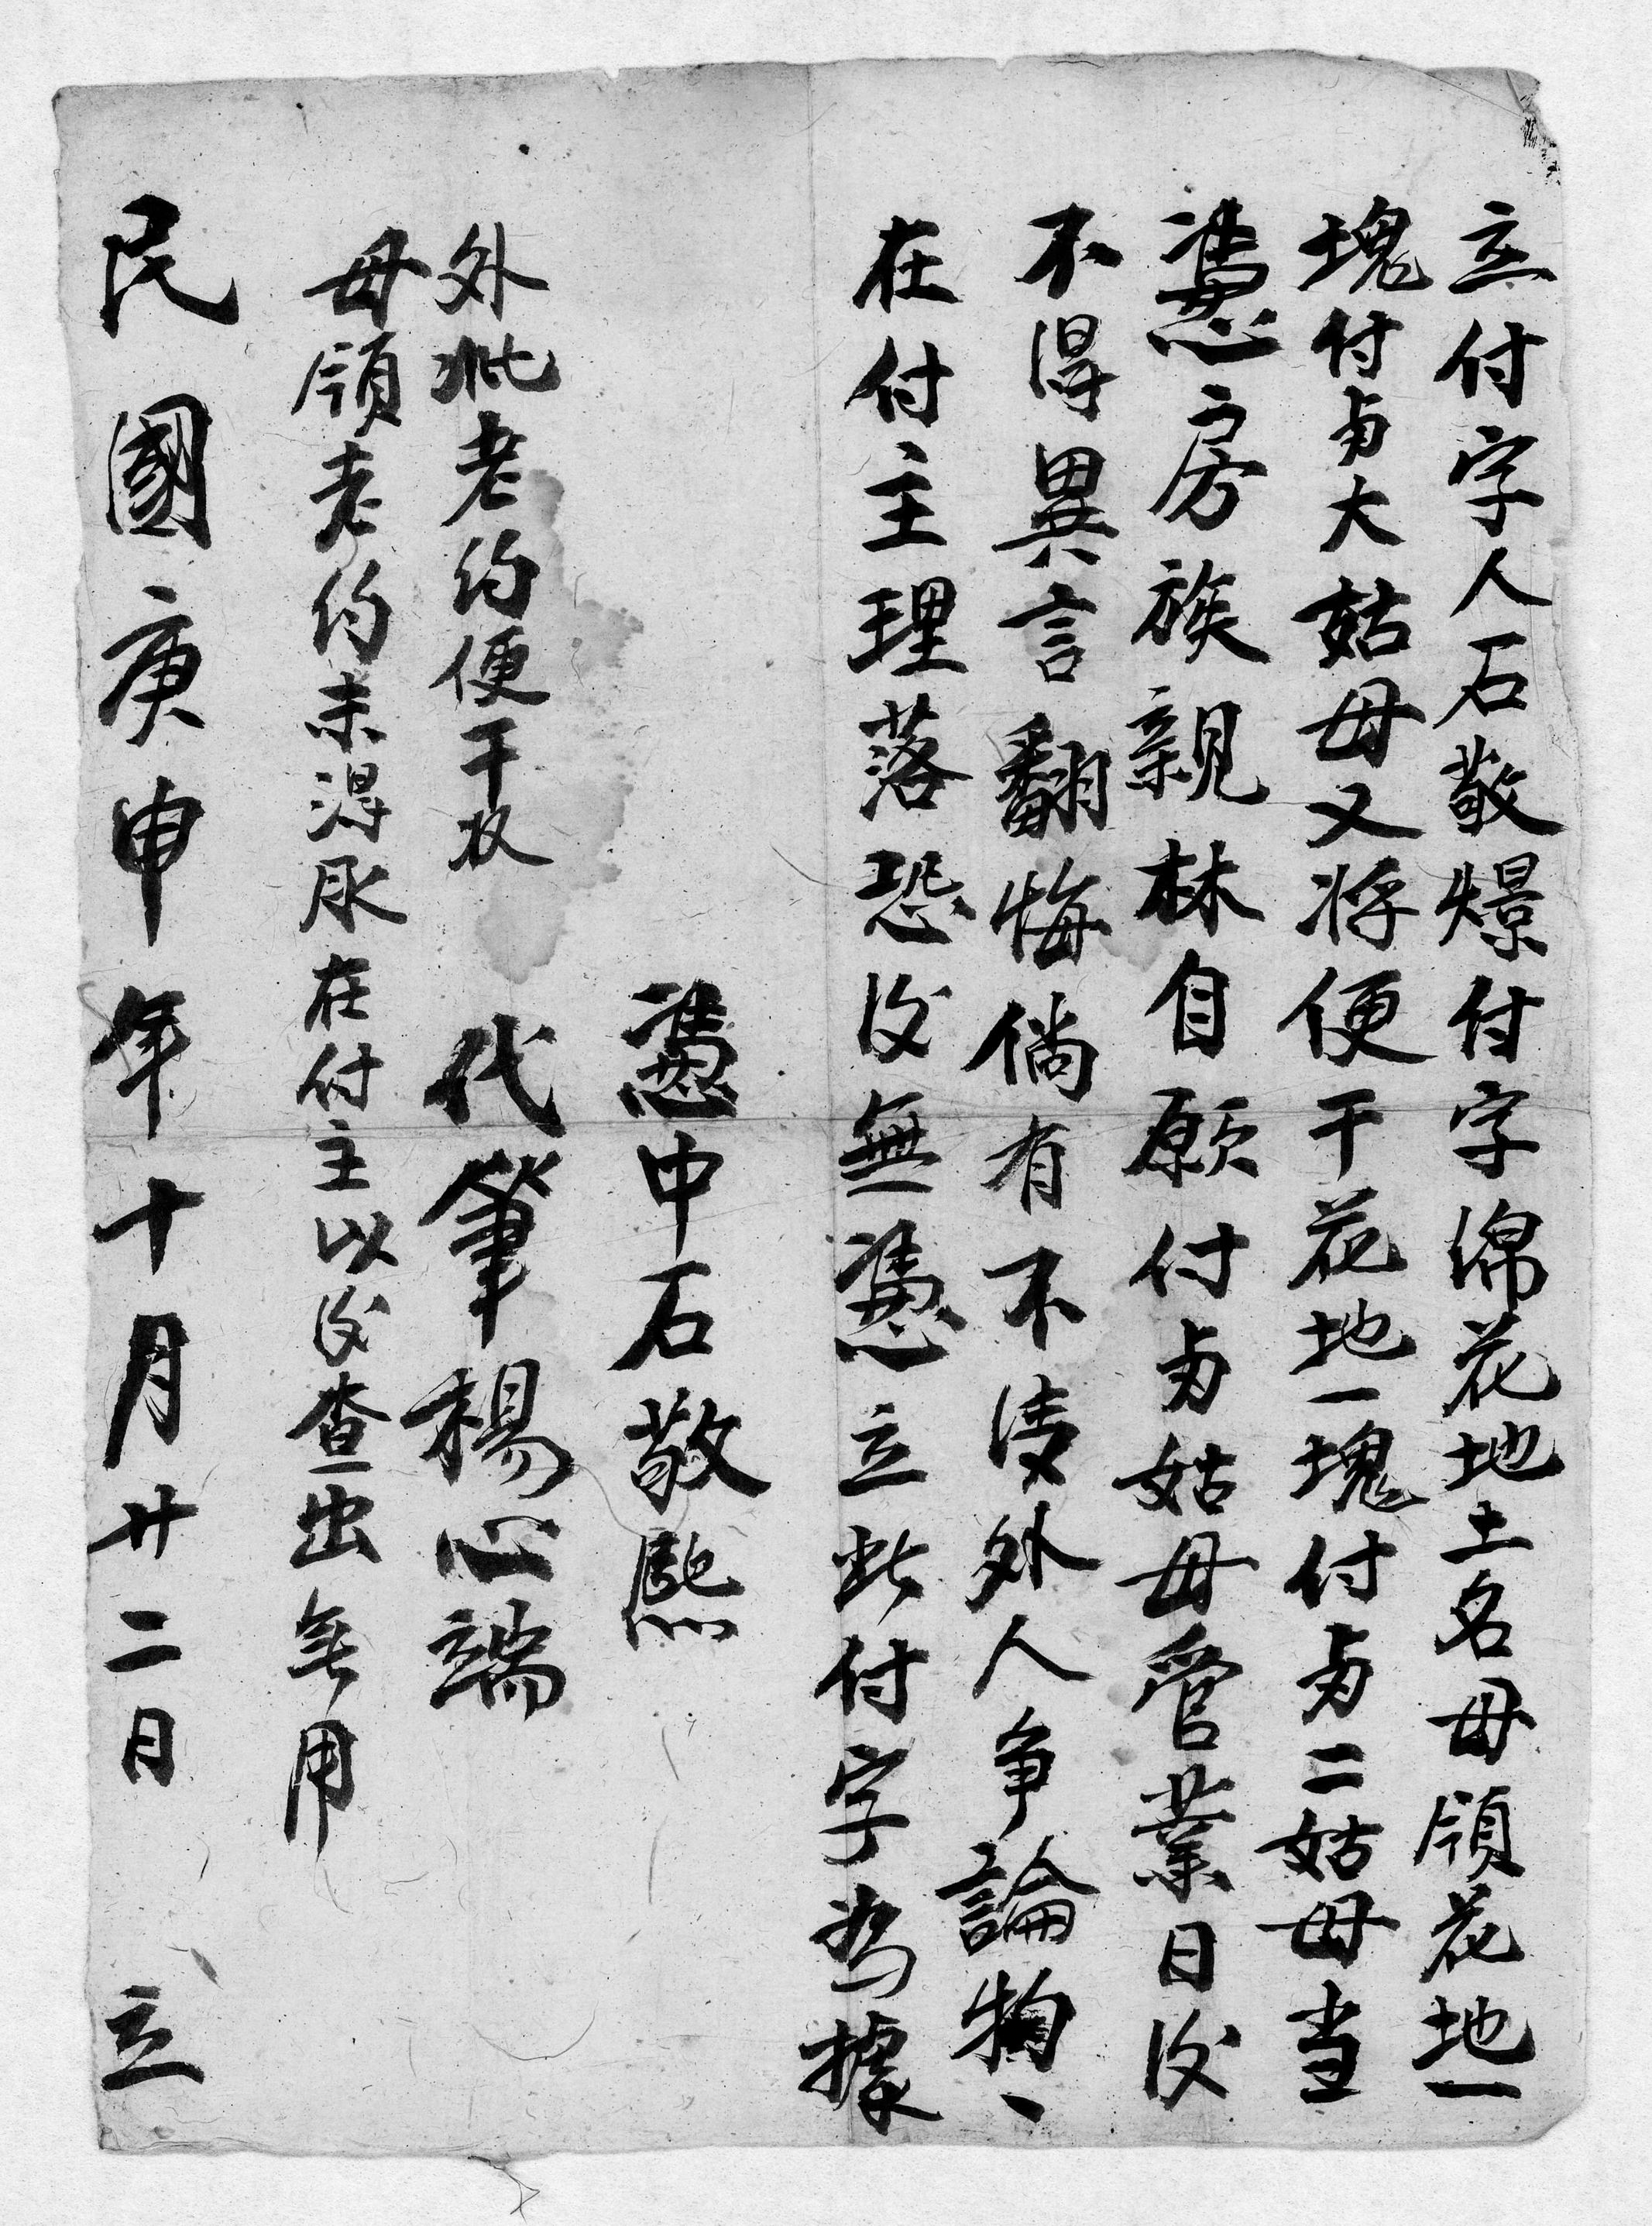 立付字人石敬燝付字綿花地土名毋領花地一
塊付与大姑母又将便干花地一塊付与二姑母当
憑房族親林自願付与姑母管業日後
不得異言翻悔倘有不清外人争論
在付主理落恐後無憑立此付字為據
憑中石敬熙
外批老約便干收
代筆楊心端
毋領老約未淂
在付主以後查出無用
民國庚申年十月廿二日 立